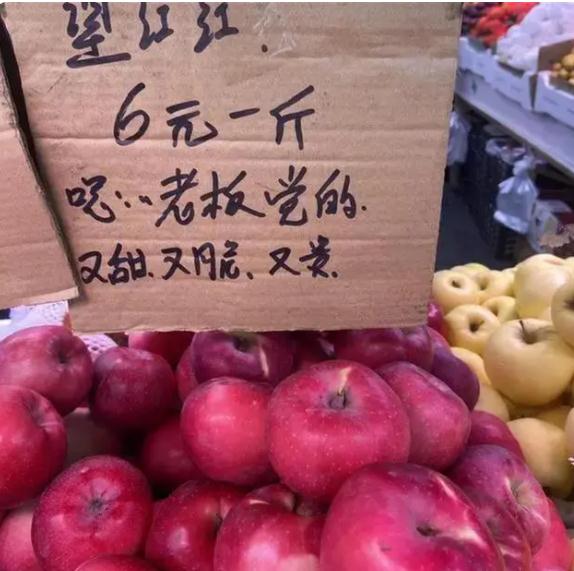 红红.
6元一斤
嗯…老板觉的.
又甜.又脆、又贵.